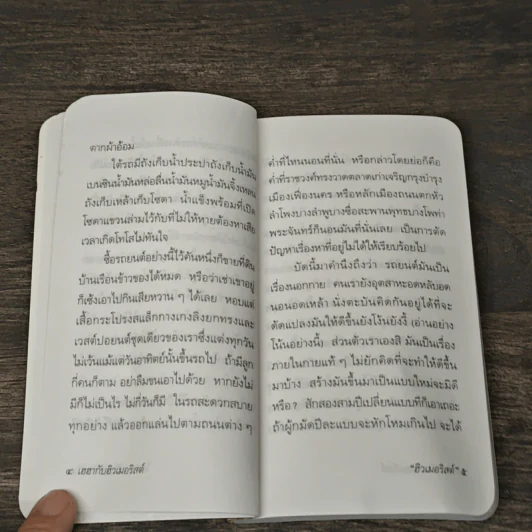 ตากผ้าอ้อม
ใต้รถมีถังเก็บน้ำประปาถังเก็บน้ำมัน
เบนซินน้ำมันหล่อลื่นน้ำมันหมูน้ำมันจิ้งเหลน
ถังเก็บเหล้าเก็บโซดา น้ำแข็งพร้อมที่เปิด
โซดาแขวนล่ามไว้กับที่ไม่ให้หายต้องหาเสีย
เวลาเกิดโทโสไม่ทันใจ
ซื้อรถยนต์อย่างนี้ไว้คันหนึ่งก็ขายที่ดิน
บ้านเรือนข้าวของได้หมด หรือว่าเช่าเขาอยู่
ก็เซ้งเอาไปกินเสียหวาน ๆ ได้เลย หอบแต่
เสื้อกระโปรงสแล็กกางเกงลิงยกทรงและ
เวสต์ปอยนต์ชุดเดียวของเราซึ่งแต่งทุกวัน
ไม่เว้นแม้แต่วันอาทิตย์นั้นขึ้นรถไป ถ้ามีลูก
กี่คนก็ตาม อย่าลืมขนเอาไปด้วย หากยังไม่
มีก็ไม่เป็นไร ไม่กี่วันก็มี ในรถสะดวกสบาย
ทุกอย่าง แล้วออกแล่นไปตามถนนต่าง ๆ
๔ เฮฮากับฮิวเมอริสต์
ค่ำที่ไหนนอนที่นั่น หรือกล่าวโดยย่อก็คือ
ค่ำที่ราชวงศ์ทรงวาดตลาดเก่าเจริญกรุงบำรุง
เมืองเฟื่องนคร หรือหลักเมืองถนนตกหัว
ลำโพงบางลำพูบางซื่อสะพานพุทธบางไพท่า
พระจันทร์ก็นอนมันที่นั่นเลย เป็นการตัด
ปัญหาเรื่องหาที่อยู่ไม่ได้ให้เรียบร้อยไป
บัดนี้มาคำนึงถึงว่า รถยนต์มันเป็น
เรื่องนอกกาย คนเรายังอุตสาหะอดหลับอด
นอนอดเหล้า นั่งตะบันคิดกันอยู่ได้ที่จะ
ดัดแปลงมันให้ดีขึ้นยังโง้นยังงี้ (อ่านอย่าง
โน้นอย่างนี้) ส่วนตัวเราเองสิ มันเป็นเรื่อง
ภายในกายแท้ ๆ ไม่ยักคิดที่จะทำให้ดีขึ้น
มาบ้าง สร้างมันขึ้นมาเป็นแบบใหม่จะมิดี
หรือ? สักสองสามปีเปลี่ยนแบบทีก็เอาเถอะ
ถ้าผู้กมัดปีละแบบจะหักโหมเกินไป จะได้
"ฮิวเมอริสต์" ๕